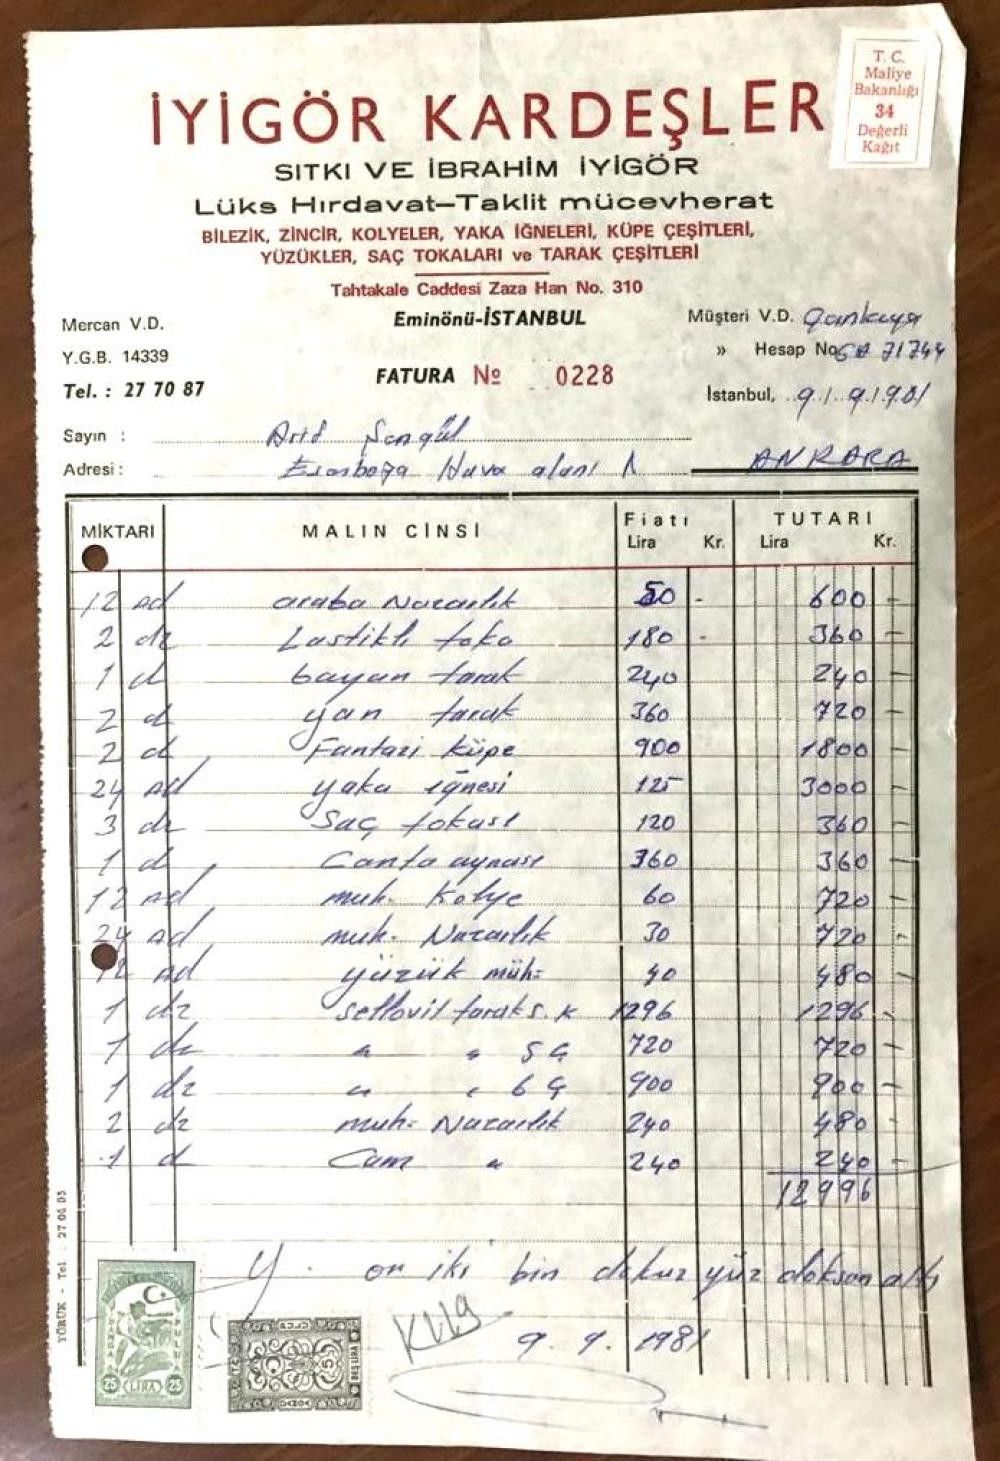 T. C.
Maliye
Bakanlığı
34
Değerli
Kağıt
İYİGÖR KARDEŞLER
SITKI VE İBRAHİM İYİGÖR
Lüks Hırdavat—Taklit mücevherat
BİLEZİK, ZİNCİR, KOLYELER, YAKA İĞNELERİ, KÜPE ÇEŞİTLERİ,
YÜZÜKLER, SAÇ TOKALARI ve TARAK ÇEŞİTLERİ
Tahtakale Caddesi Zaza Han No. 310
Eminönü-İSTANBUL
Mercan V.D.
Y.G.B. 14339
Tel. : 27 70 87
Müşteri V.D. Çankaya
» Hesap No 71744
FATURA No 0228
İstanbul, 9/9/1981
Sayın : Arif Şengül
Adresi : Esenboğa Hava alanı ANKARA
MİKTARI MALIN CİNSİ Fiatı Lira Kr. TUTARI Lira Kr.
12 ad araba Nazarlık 50 - 600 -
2 dz Lastikli toka 180 - 360 -
1 d bayan tarak 240 240 -
2 d yan tarak 360 720 -
2 d Fantazi küpe 900 1800 -
24 ad yaka iğnesi 125 3000 -
3 dz Saç tokası 120 360 -
1 d Canta aynası 360 360 -
12 ad muh. Kolye 60 720 -
24 ad muh. Nazarlık 30 720 -
12 ad yüzük müh. 40 480 -
1 dz tarak S. K 1296 1296 -
1 dz " " 5 Ç 720 720 -
1 dz " " 6 Ç 900 900 -
2 dz muh. Nazarlık 240 480 -
1 d Cam " 240 240 -
12996
Y. on iki bin dokuz yüz doksan altı
9. 9. 1981
YÖRÜK - Tel : 27 06 05
DAMGA PULU
25 LİRA 25
5
BEŞ LİRA